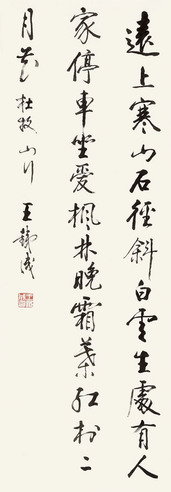 遠上寒山石徑斜白雲生處有人
家停車坐愛楓林晚霜葉紅於二
月花 杜牧山行 王鐵成